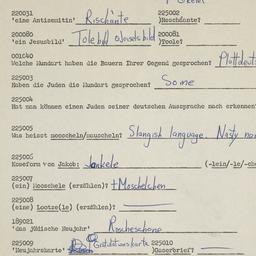 220031 225002
'eine Antisemitin' Rischante )Roschänte?
200080 200081
'ein Jesusbild' Tolebild )Toole?
001040
Welche Mundart haben die Bauern Ihrer Gegend gesprochen?
225003
Haben die Juden die Mundart gesprochen? Some
225004
Hat man können einen Juden seiner deutschen Aussprache nach erkennen
225005
Was heisst mooscheln/mauscheln? Slangish language. Nasty
225006
Koseform von Jakob: Jankele (-lein/-le/-che
225007
(ein) Mooschele (erzählen)? + Moschelchen
225008
(eine) Lootze(le) (erzählen)?
189021
'das jüdische Neujahr' Roscheschone
225009 225010
'Neujahrskarte' Gratulationskarte )Gauserbrief?